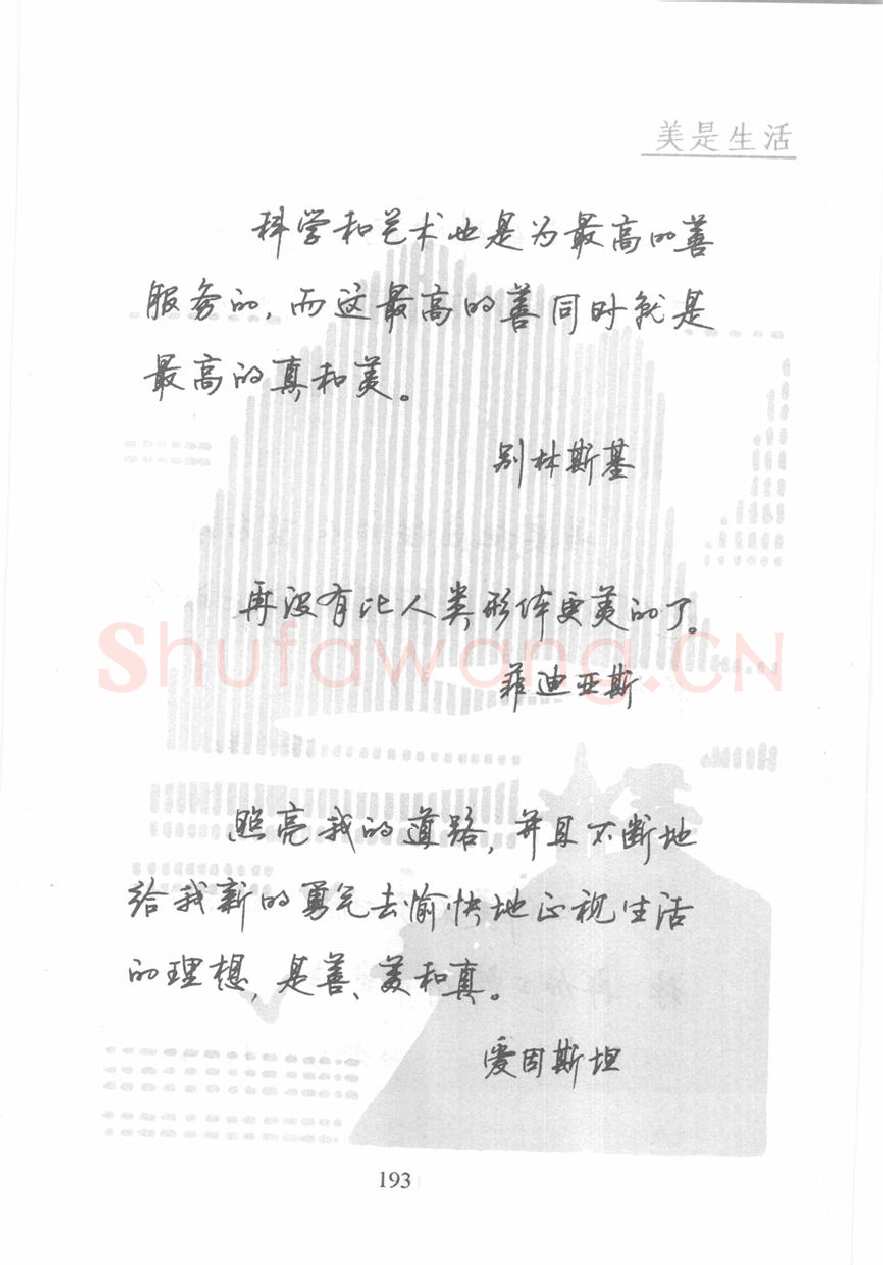 美是生活
科学和艺术也是为最高的善
服务的,而这最高的善同时就是
最高的真和美。
别林斯基
再没有比人类形体更美的了。
Shufawang.CN
菲迪亚斯
照亮我的道路,并且不断地
给我新的勇气去愉快地正视生活
的理想,是善、美和真。
爱因斯坦
193